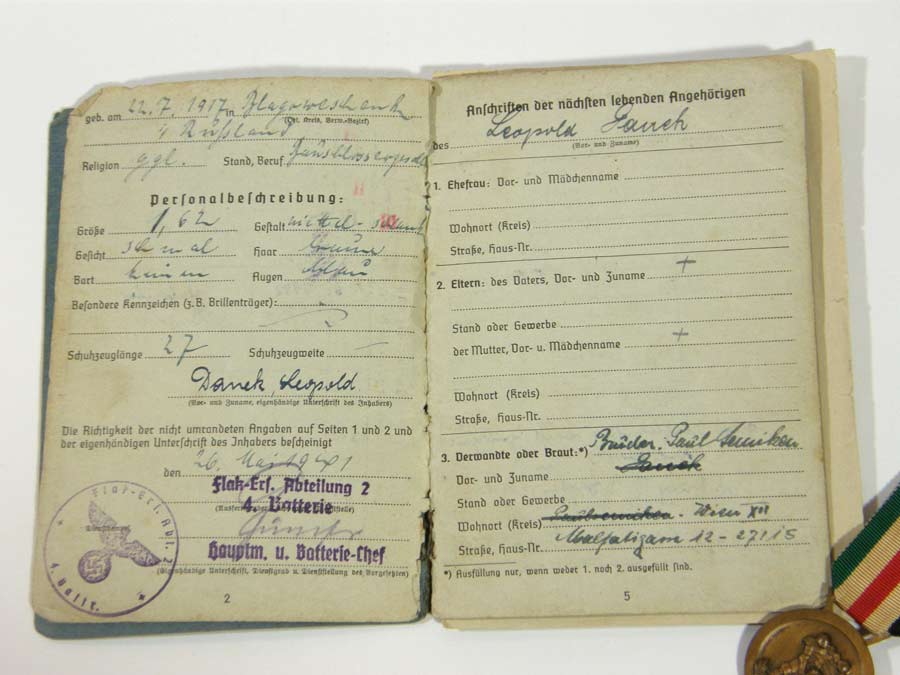 geb. am 22.7.1917 in Blagoweschensk
(Ort, Kreis, Verw.-Bezirk)
Rußland
Religion ggl. Stand, Beruf
Personalbeschreibung:
Größe 1,62 Gestalt mittel-schlank
Gesicht schmal Haar braun
Bart keinen Augen blau
Besondere Kennzeichen (z.B. Brillenträger):
Schuhzeuglänge 27 Schuhzeugweite —
Danek, Leopold
(Vor- und Zuname, eigenhändige Unterschrift des Inhabers)
Die Richtigkeit der nicht umrandeten Angaben auf Seiten 1 und 2 und
der eigenhändigen Unterschrift des Inhabers bescheinigt
den 26. Mai 1941
Flak-Ers. Abteilung 2
4. Batterie
Hauptm. u. Batterie-Chef
(Eigenhändige Unterschrift, Dienstgrad u. Dienststellung des Vorgesetzten)
Flak-Ers. Abtl. 2
4. Battr.
2
Anschriften der nächsten lebenden Angehörigen
des Leopold Danek
(Vor- und Zuname)
1. Ehefrau: Vor- und Mädchenname
Wohnort (Kreis)
Straße, Haus-Nr.
2. Eltern: des Vaters, Vor- und Zuname +
Stand oder Gewerbe
der Mutter, Vor- u. Mädchenname +
Wohnort (Kreis)
Straße, Haus-Nr.
3. Verwandte oder Braut:*) Bruder. Paul
Vor- und Zuname Danek
Stand oder Gewerbe
Wohnort (Kreis) Wien XII
Straße, Haus-Nr. Malfatigasse 12-27/15
*) Ausfüllung nur, wenn weder 1. noch 2. ausgefüllt sind.
5